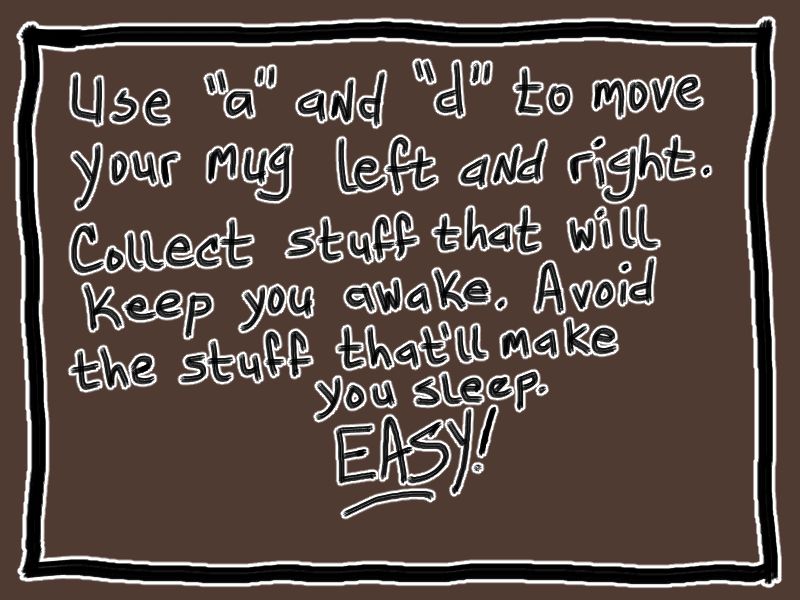 Use "a" and "d" to move
your mug left and right.
Collect stuff that will
keep you awake. Avoid
the stuff that'll make
you sleep.
EASY!